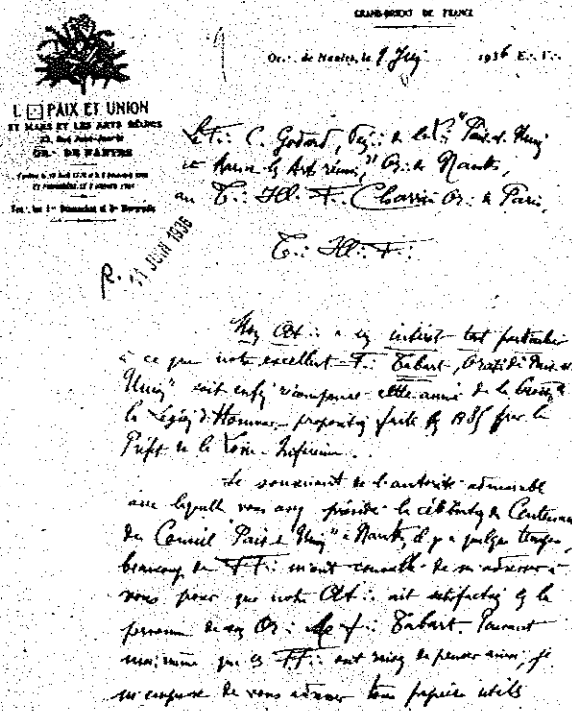 GRAND-ORIENT DE FRANCE
Or∴ de Nantes, le 9 Juin 1936 E∴ V∴
L PAIX ET UNION
ET MARS ET LES ARTS RÉUNIS
OR∴ DE NANTES
Le F∴ C. Godard, de la "Paix et Union
et Mars et les Arts réunis," Or∴ de Nantes,
au T∴ Ill∴ F∴ Charrié Or∴ de Paris,
T∴ Ill∴ F∴
R. 11 JUIN 1936
Mon At∴ a un intérêt tout particulier
à ce que notre excellent F∴ Tabart, de "Paix et
Union" soit enfin récompensé cette année de la
la Légion d'Honneur, proposition faite en 1935 par le
Préfet de la Loire-Inférieure.
Se souvenant de l'autorité admirable
avec laquelle vous avez présidé la du Centenaire
du Conseil "Paix et Union" à Nantes, il y a quelque temps,
beaucoup de FF∴ m'ont conseillé de m'adresser à
vous pour que notre At∴ ait satisfaction en la
personne de son Or∴ le F∴ Tabart.
moi-même que ces FF∴ ont raison de penser ainsi, je
m'empresse de vous adresser tous papiers utiles